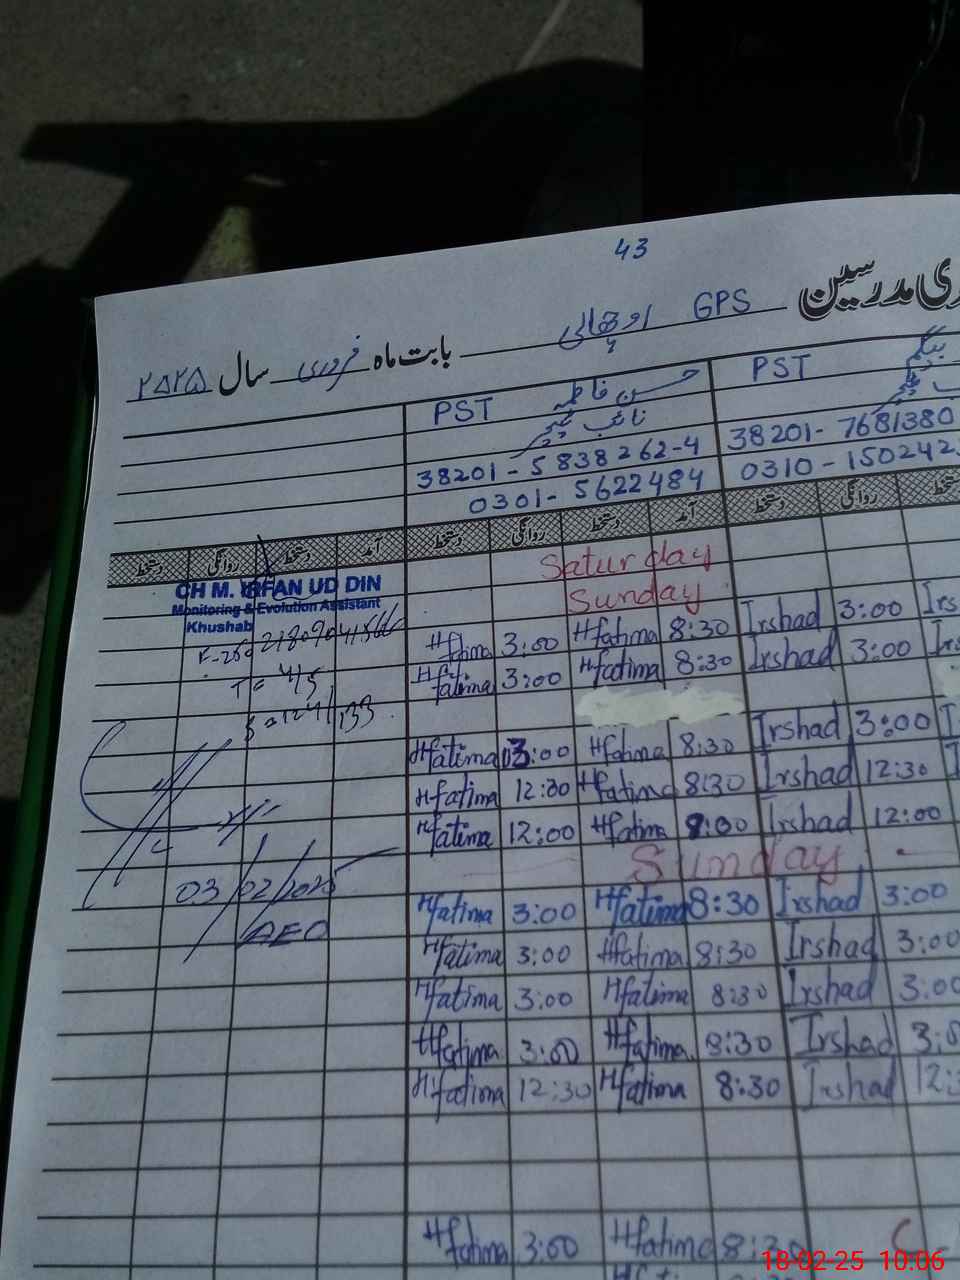 43
ری مدرسین GPS اوچھالی بابت ماہ فروری سال ۲۰۲۵
PST حسن فاطمہ PST بیگم
نائب ٹیچر
38201-5838262-4 38201-7681380
0301-5622484 0310-150242
دستخط روانگی دستخط آمد دستخط روانگی دستخط آمد دستخط روانگی دستخط
Saturday
CH M. IRFAN UD DIN
Monitoring & Evolution Assistant
Khushab
Sunday
Hfatima 3:00 Hfatima 8:30 Irshad 3:00 Irs
Hfatima 3:00 Hfatima 8:30 Irshad 3:00 Irs
T = 45
Irshad 3:00
Hfatima 03:00 Hfatima 8:30 Irshad 12:30 I
Hfatima 12:30 Hfatima 8:30 Irshad 12:00
Hfatima 12:00 Hfatima 9:00
Sunday
03/02/2025
AEO
Hfatima 3:00 Hfatima 8:30 Irshad 3:00
Hfatima 3:00 Hfatima 8:30 Irshad 3:00
Hfatima 3:00 Hfatima 8:30 Irshad 3:00
Hfatima 3:00 Hfatima 8:30 Irshad 3:0
Hfatima 12:30 Hfatima 8:30 Irshad 12:3
Hfatima 3:00 Hfatima 8:30
18-02-25 10:06